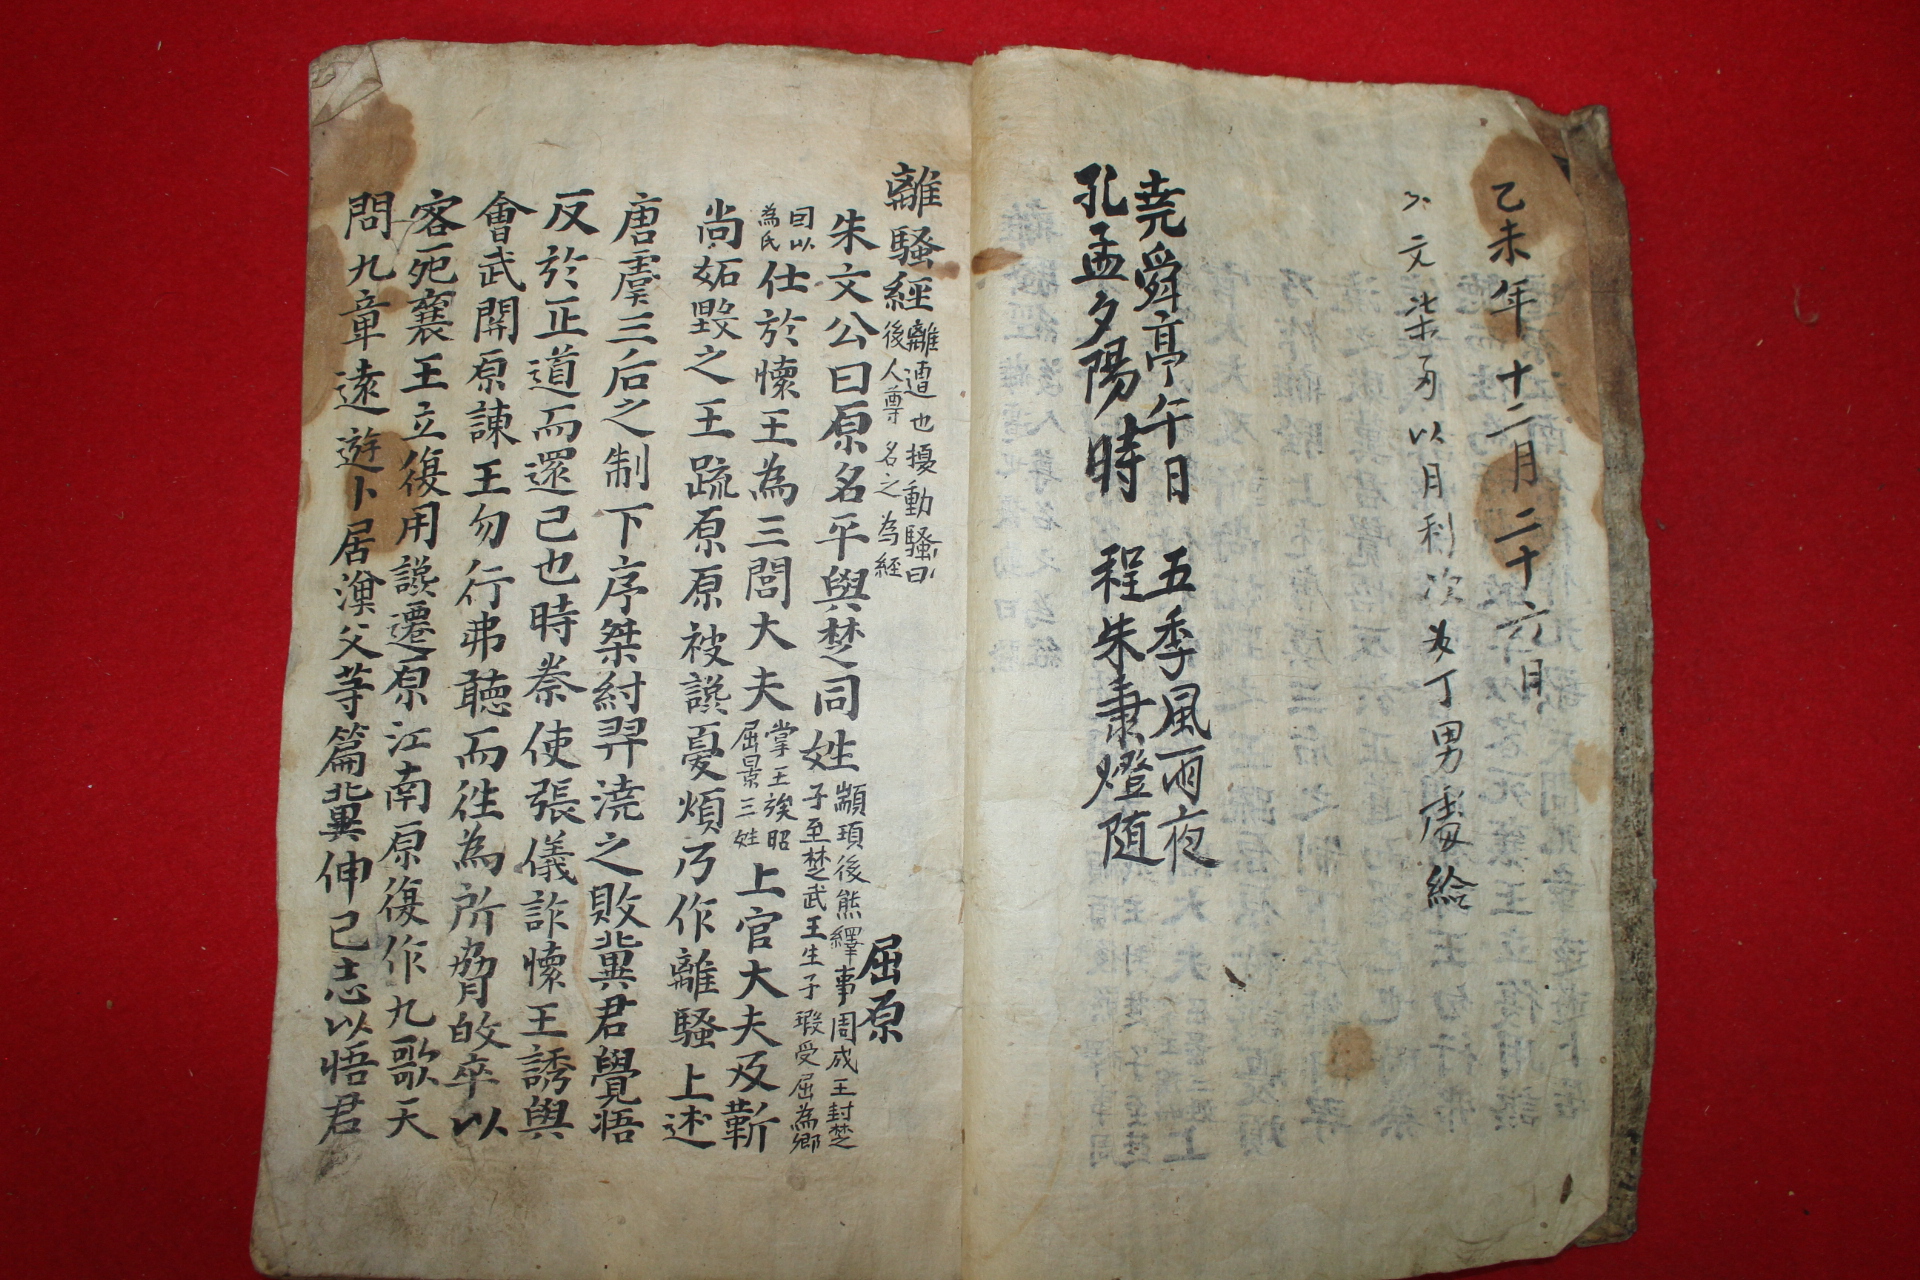 乙未年十二月二十六月
文柒 以月利次 丁男處給
堯舜亭午日 五季風雨夜
孔孟夕陽時 程朱肅燈随
離騷經離遭也擾動騷曰
後人尊名之為經
屈原
朱文公曰原名平與楚同姓顓頊後熊繹事周成王封楚
子至楚武王生子瑕受屈為卿
因以
為氏仕於懷王為三閭大夫掌王族昭
屈景三姓上官大夫及靳
尚妬毀之王疏原原被讒憂煩乃作離騷上述
唐虞三后之制下序桀紂羿澆之敗冀君覺悟
反於正道而還己也時秦使張儀詐懷王誘與
會武關原諫王勿行弗聽而徃為所脅故卒以
客死襄王立復用讒遷原江南原復作九歌天
問九章遠遊卜居漁父等篇冀伸己志以悟君